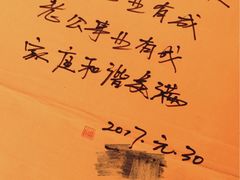 业有成
老公事业有成
家庭和谐美满
2017.元.30